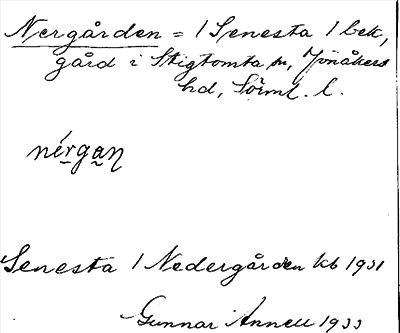 Nergården = / Senesta / bek,
gård i Stigtomta sn, Jönåkers
hd, Sörml. l.
nérgan
Senesta / Nedergården kb 1931
Gunnar Annell 1933